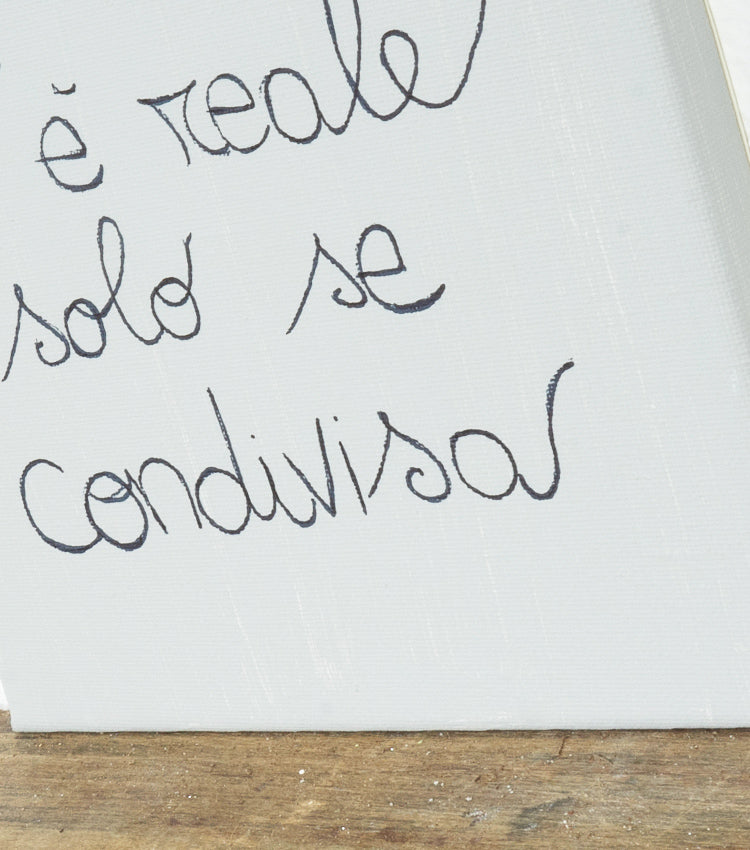 è reale
solo se
condivisa